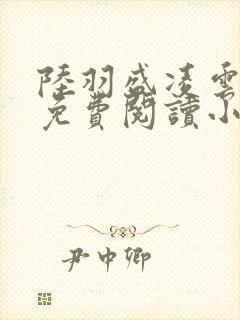 陸羽盛凌雲
免費閱讀小
尹中卿